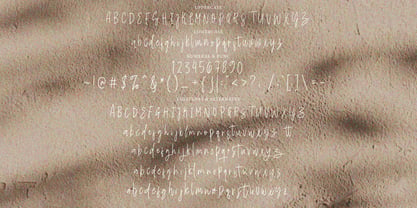 UPPERCASE
ABCDEFGHIJKLMNOPQRSTUVWXYZ
LOWERCASE
abcdefghijklmnopqrstuvwxyz
NUMERAL & PUNC
1234567890
~!@#$%^&*()_+{}|:"<>?,./;'[]\=-
LIGATURES & ALTERNATE
ABCDEFGHIJKLMNOPQRSTUVWXYZ
abcdefghijklmnopqrstuvwxyz tt
abcdefghijklmnopqrstuvwxyz
abcdefghijklmnopqrstuvwxyz
abcdefghijklmnopqrstuvwxyz